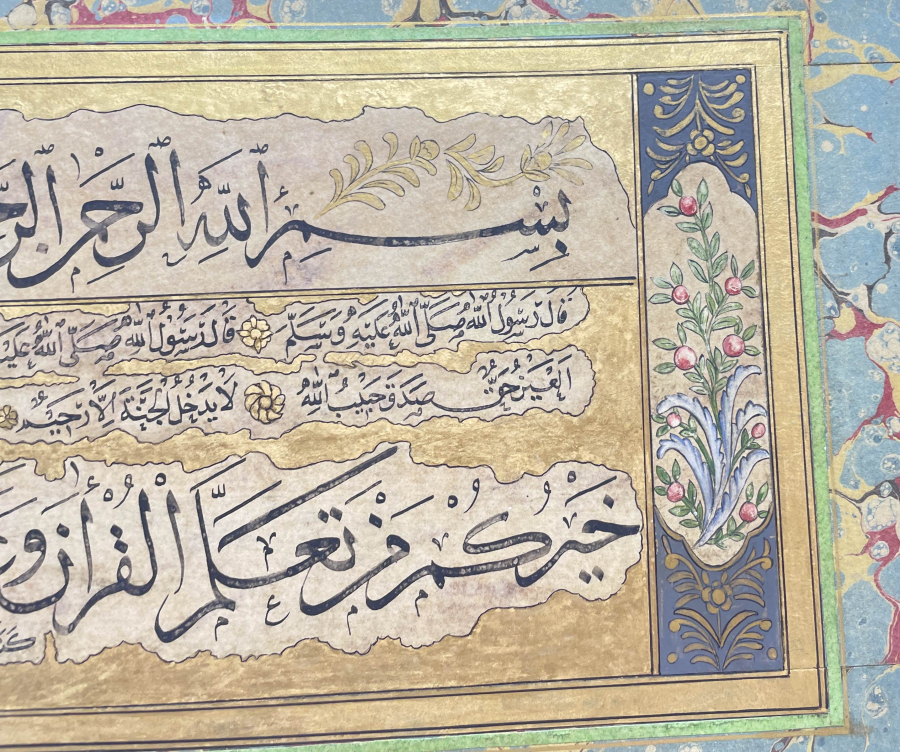 بِسْمِ اللهِ الرَّحْمٰنِ الرَّح
قَالَ رَسُولُ اللهِ صَلَّى اللهُ عَلَيْهِ وَسَلَّمَ قَالَ رَسُولُ اللهِ صَلَّى اللهُ عَلَيْ
اَلْعَيْنُ حَقٌّ صَدَقَ حَبِيبُ اللهِ لَا يَدْخُلُ الْجَنَّةَ اِلَّا رَحِيمٌ
خَيْرُكُمْ مَنْ تَعَلَّمَ الْقُرْاٰنَ وَعَ